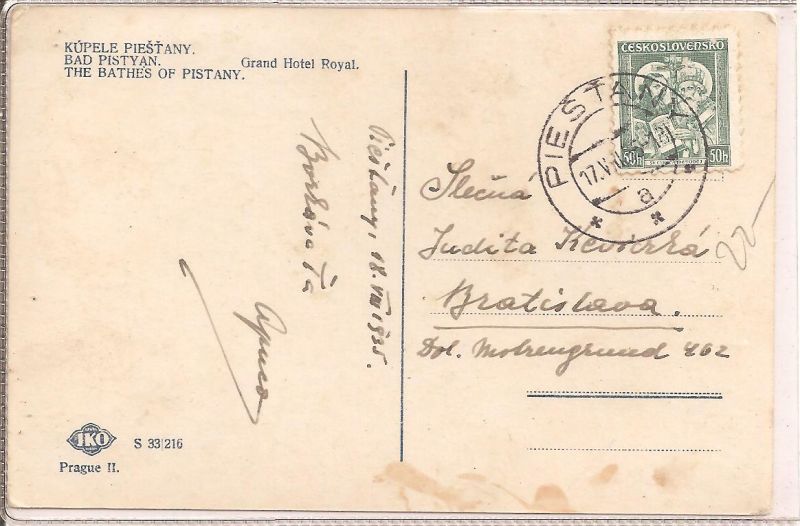 KÚPELE PIEŠŤANY.
BAD PISTYAN.
THE BATHES OF PISTANY.
Grand Hotel Royal.
Piešťany, 18. VIII 1935.
Bozkáva Ťa
Apuco
IKO
S 33|216
Prague II.
ČESKOSLOVENSKO
50h
50h
PIEŠŤANY
17.V
a
Slečná
Judita
Bratislava.
Dol. Mohrengrund 462
22-